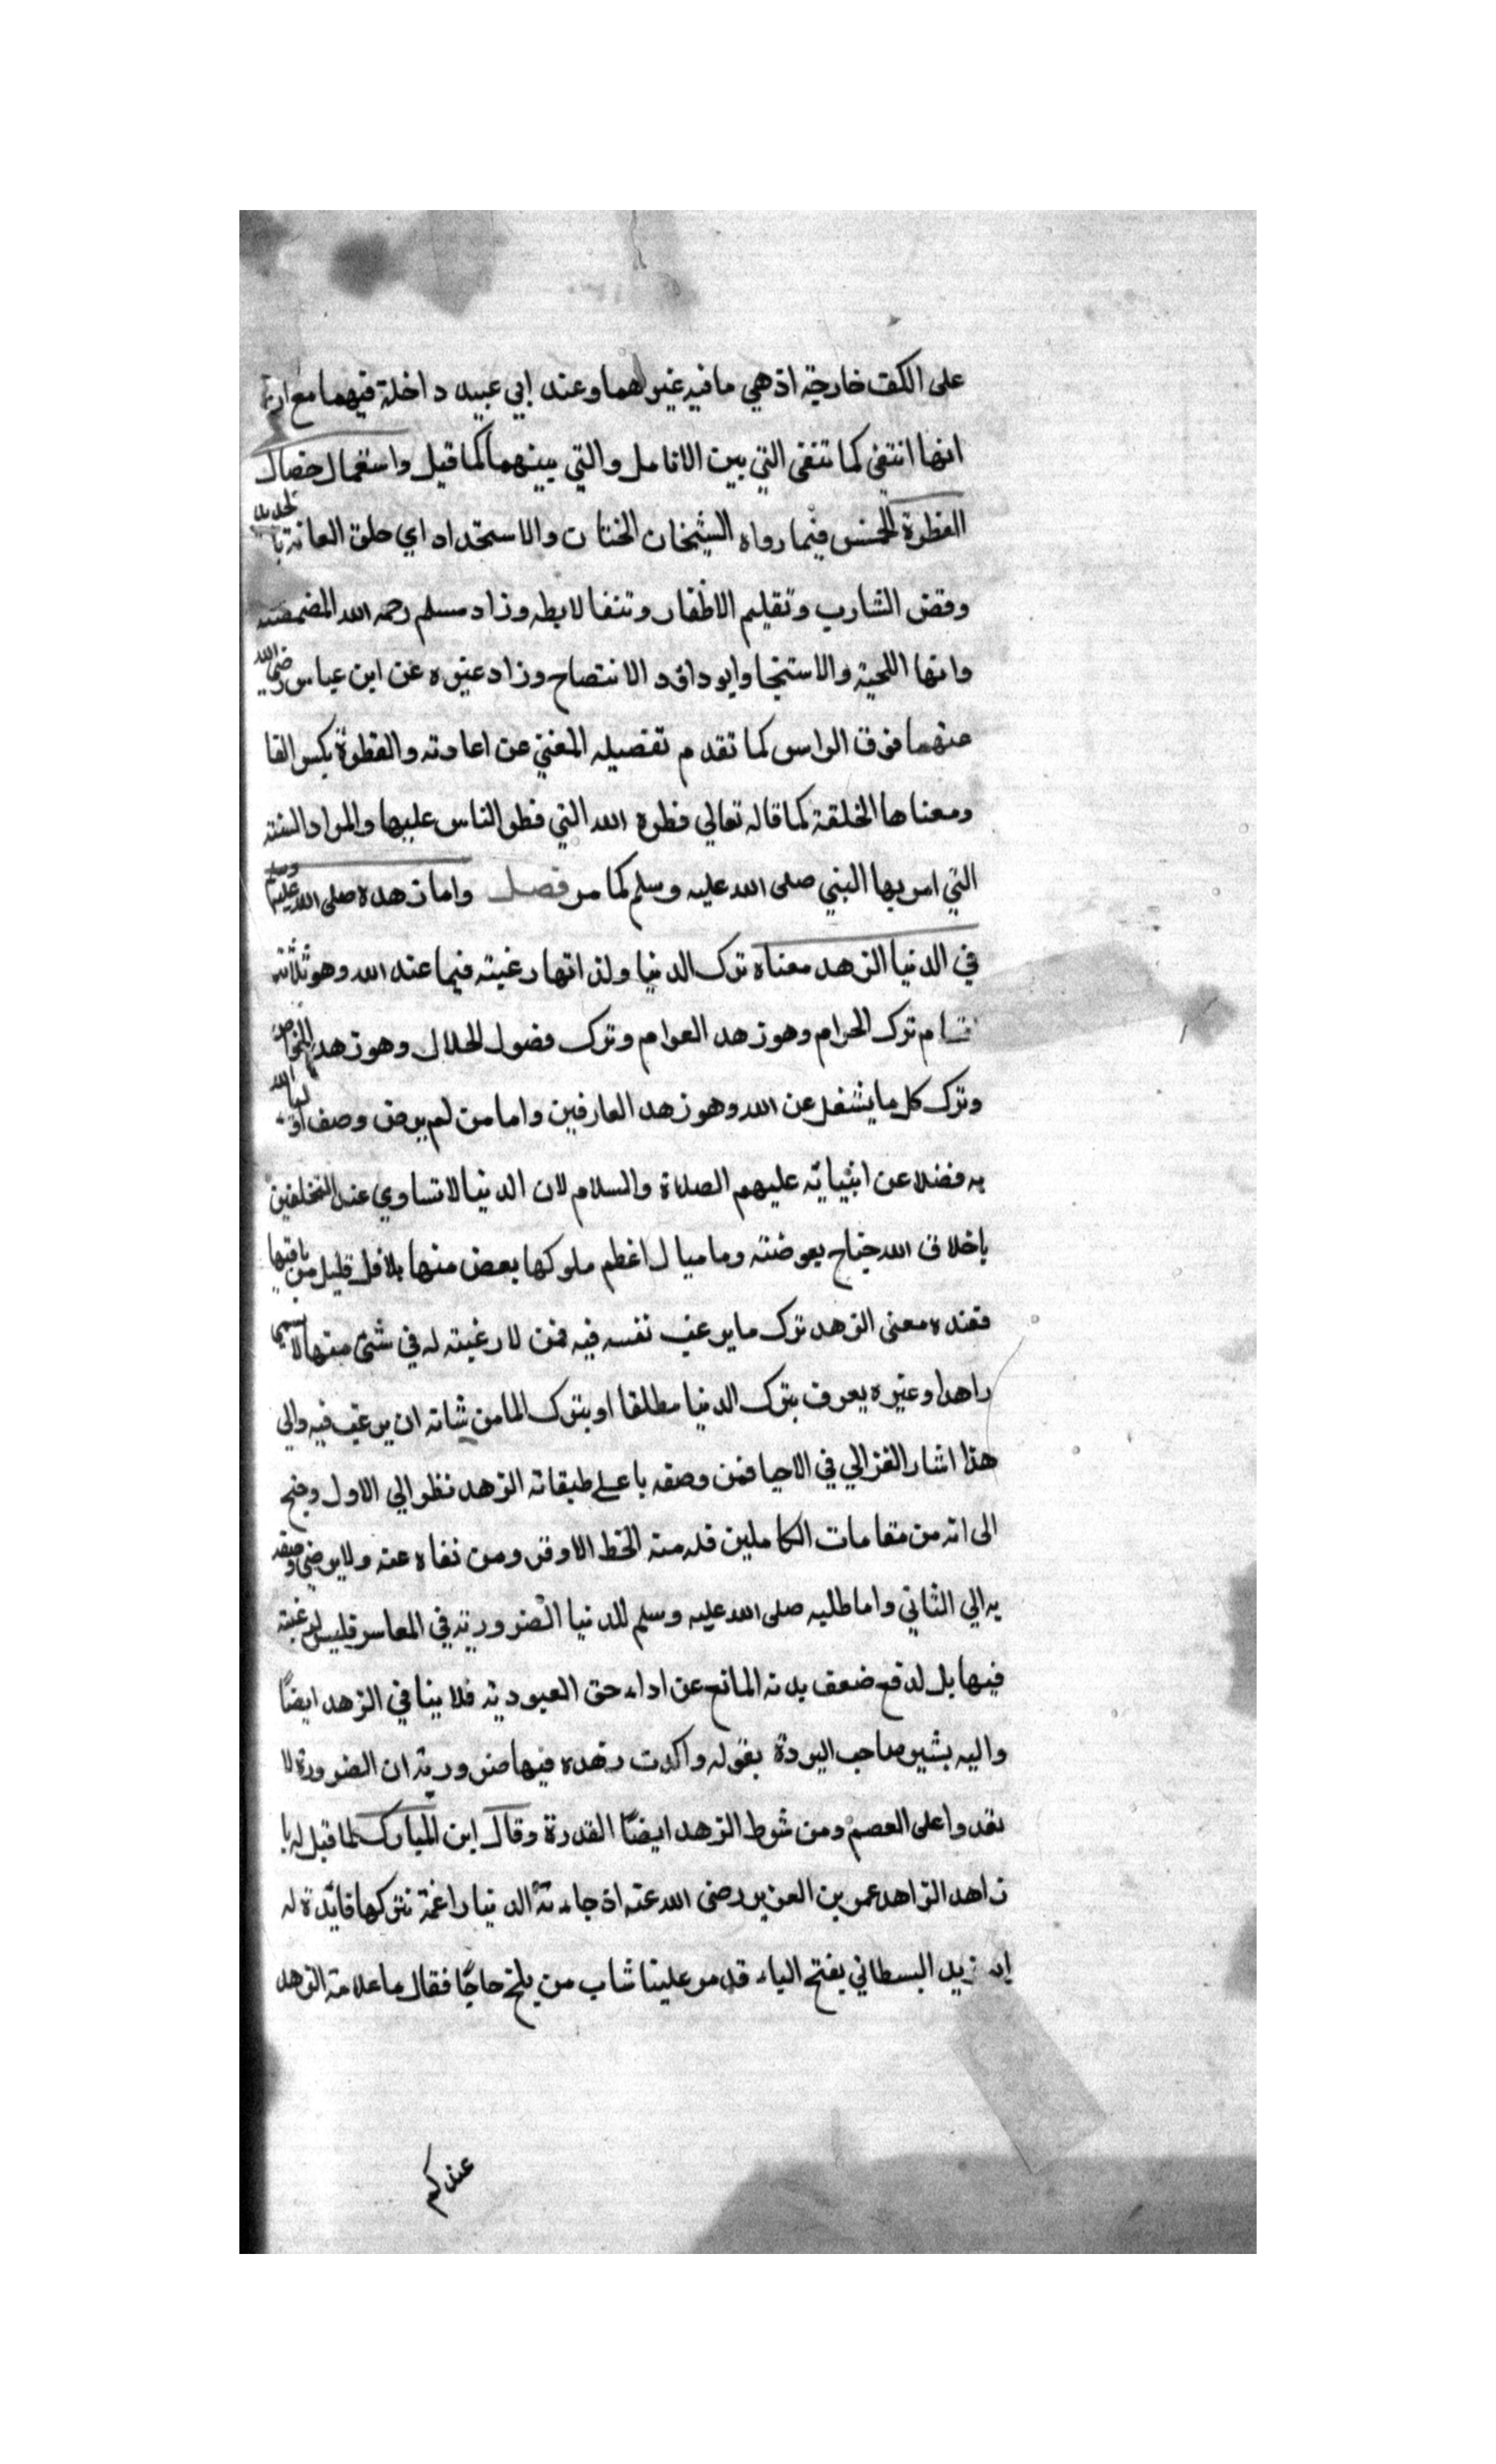 على الكف خارجة اذ هي ما فيه غيرهما وعند ابي عبيد داخلة فيهما مع
انها انتفى كما تنقى التي بين الانامل والتي بينهما كما قيل واستعمال خصال
الفطرة الخمس فيما رواه الشيخان الختان والاستحداد اي حلق العانة بالحديد
وقص الشارب وتقليم الاظفار ونتف الابط وزاد مسلم رحمه الله المضمضة
واعفا اللحية والاستنجا وابو داود الانتضاح وزاد غيره عن ابن عباس رضي الله
عنهما فرق الراس كما تقدم تفصيله المغني عن اعادته والفطرة بكسر الفا
ومعناها الخلقة كما قاله تعالي فطرة الله التي فطر الناس عليها والمراد السنة
التي امر بها النبي صلى الله عليه وسلم كما مر فصل واما زهده صلى الله عليه وسلم
في الدنيا الزهد معناه ترك الدنيا ولذاتها رغبته فيما عند الله وهو ثلاثة
اقسام ترك الحرام وهو زهد العوام وترك فضول الحلال وهو زهد الخواص
وترك كل ما يشغل عن الله وهو زهد العارفين واما من لم يرض وصف اوليا الله
به فضلا عن انبيائه عليهم الصلاة والسلام لان الدنيا لا تساوي عند المتخلقين
باخلاق الله جناح بعوضة وما ميال اعظم ملوكها بعض منها بلاقل قليل من باقيها
فعنده معنى الزهد ترك ما يرغب نفسه فيه فمن لا رغبته له في شئ منها لا يسمى
زاهدا وغيره يعرف بترك الدنيا مطلقا او بترك لما من شانه ان يرغب فيه والي
هذا اشار الغزالي في الاحيا فمن وصفه باعلى طبقات الزهد نظر الي الاول وجنح
الى انه من مقامات الكاملين فله منه الحظ الاوفر ومن نفاه عنه ولا يرضى وصفه
به الي الثاني واما طلبه صلى الله عليه وسلم للدنيا الضرورية في المعاس فليس لرغبته
فيها بل لدفع ضعف بدنه المانع عن اداء حق العبودية فلا ينافي الزهد ايضًا
واليه يشير صاحب البردة بقوله واكدت زهده فيها ضرورية ان الضرورة لا
تعدوا على العصم ومن شرط الزهد ايضًا القدرة وقال ابن المبارك لما قيل له يا
زاهد الزاهد عمر بن العزيز رضى الله عنه اذ جاءته الدنيا راغمة فتركها فائدة له
زيد البسطاني بفتح الياء قدم علينا شاب من بلخ حاجًا فقال ما علامة الزهد
عندكم